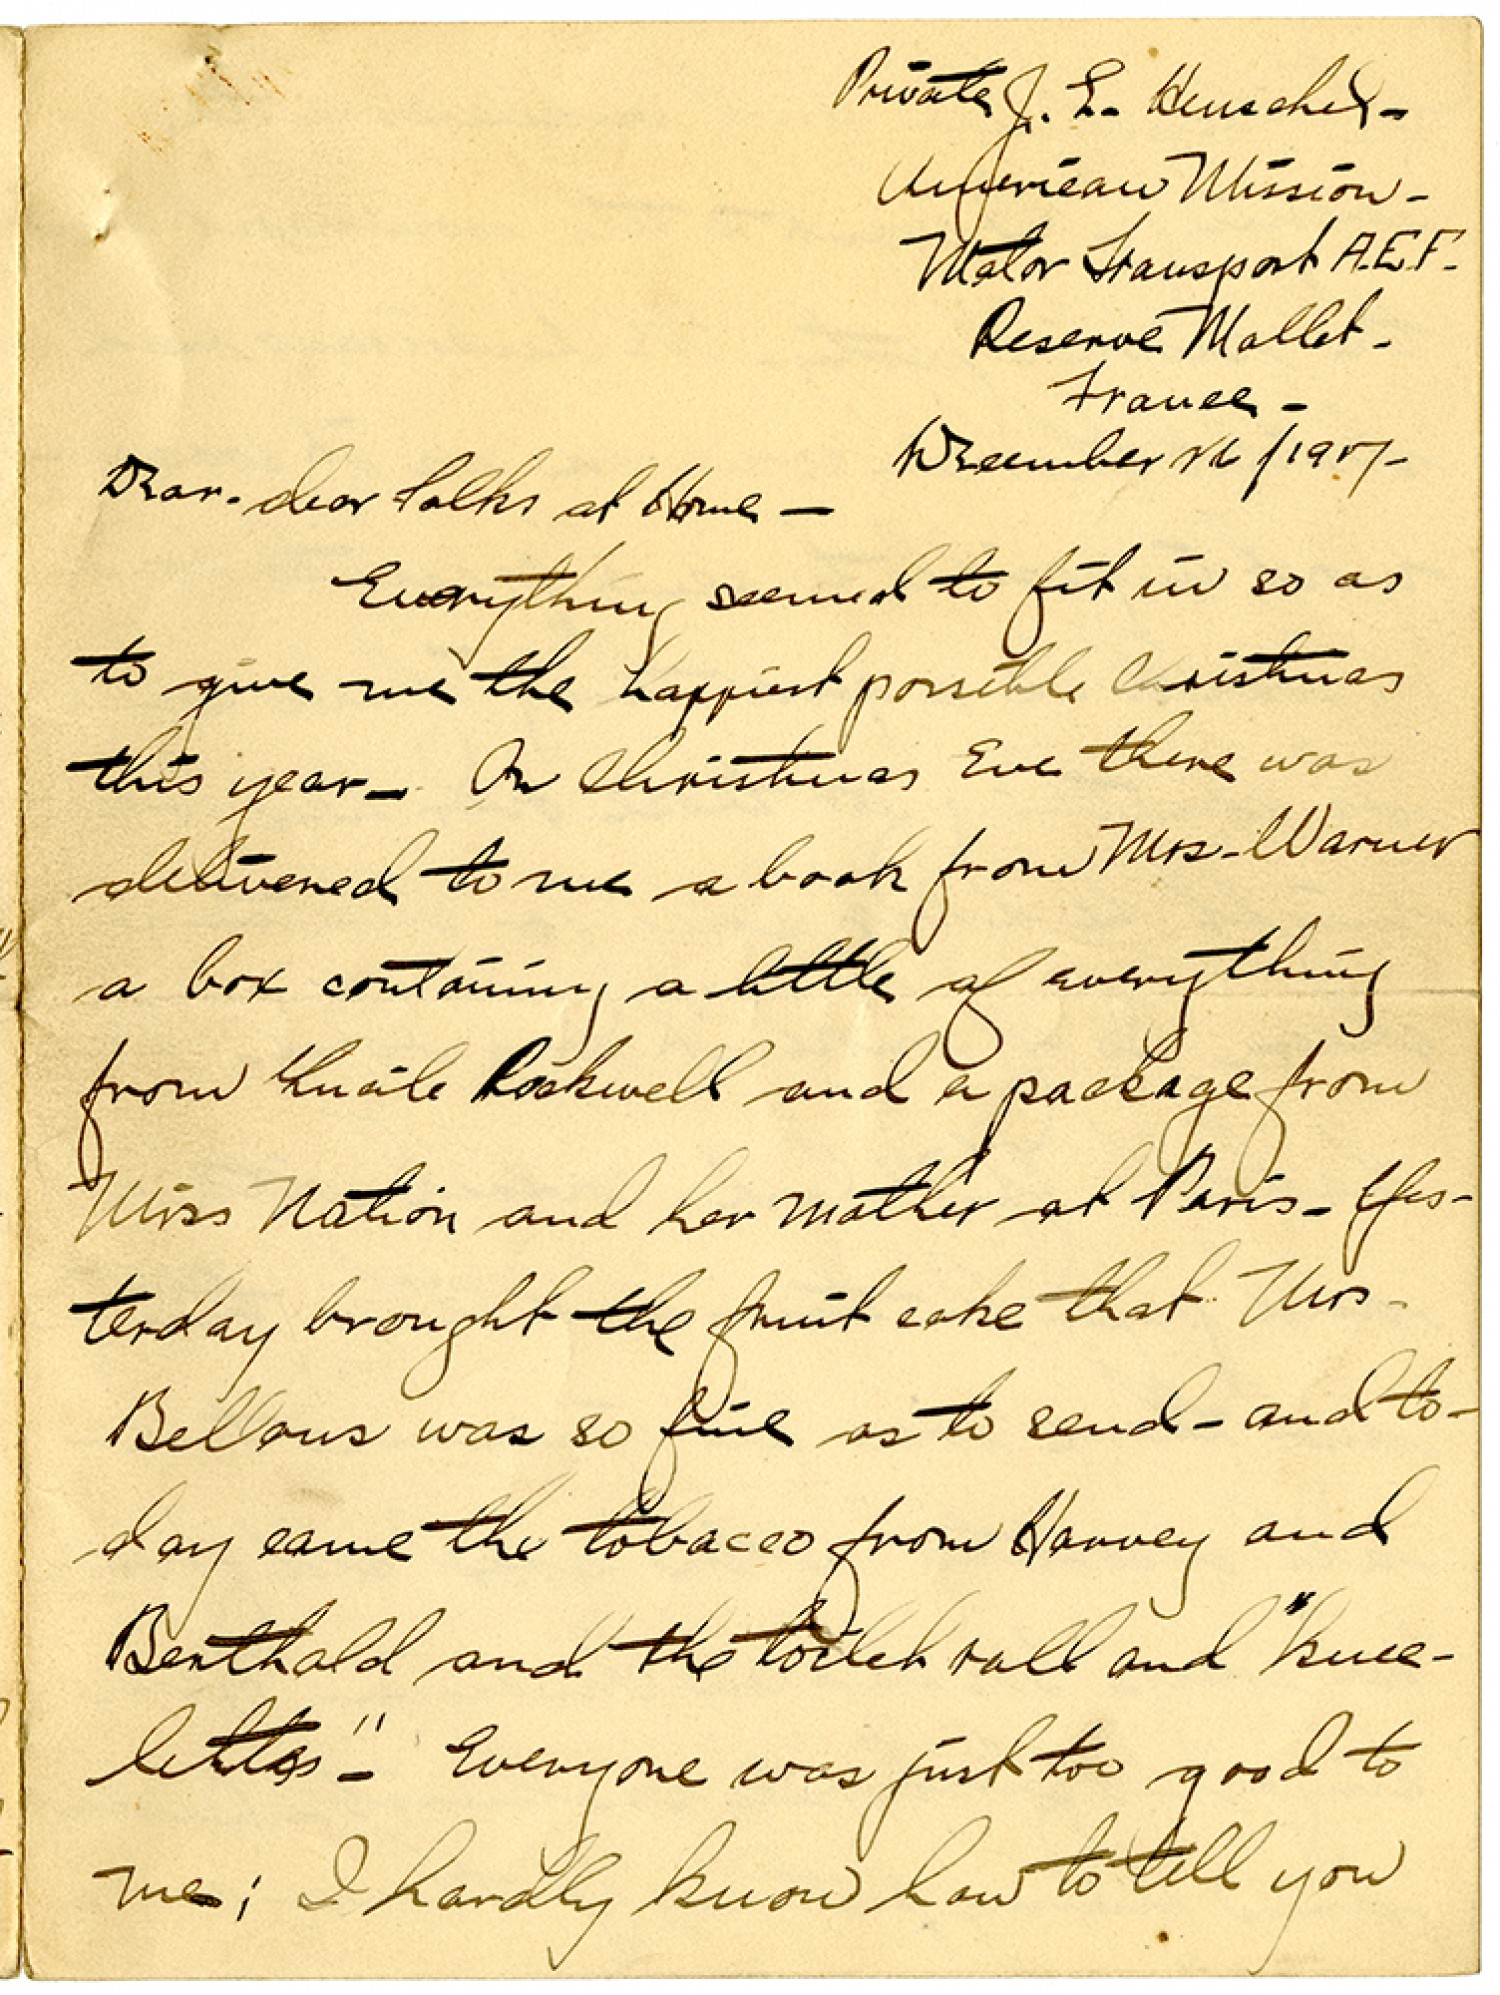 Private J. E. Henschel -
American Mission -
Motor Transport A.E.F. -
Reserve Mallet -
France -
December 26/1917 -
Dear - dear folks at Home -
Everything seemed to fit in so as
to give me the happiest possible Christmas
this year - On Christmas Eve there was
delivered to me a book from Mrs - Warner
a box containing a little of everything
from Lucile Rockwell and a package from
Miss Nation and her mother at Paris - Yes-
terday brought the fruit cake that Mrs -
Bellows was so fine as to send - and to -
day came the tobacco from Harvey and
Berthold and the toilet roll and "knee-
lettes" - Everyone was just too good to
me; I hardly know how to tell you